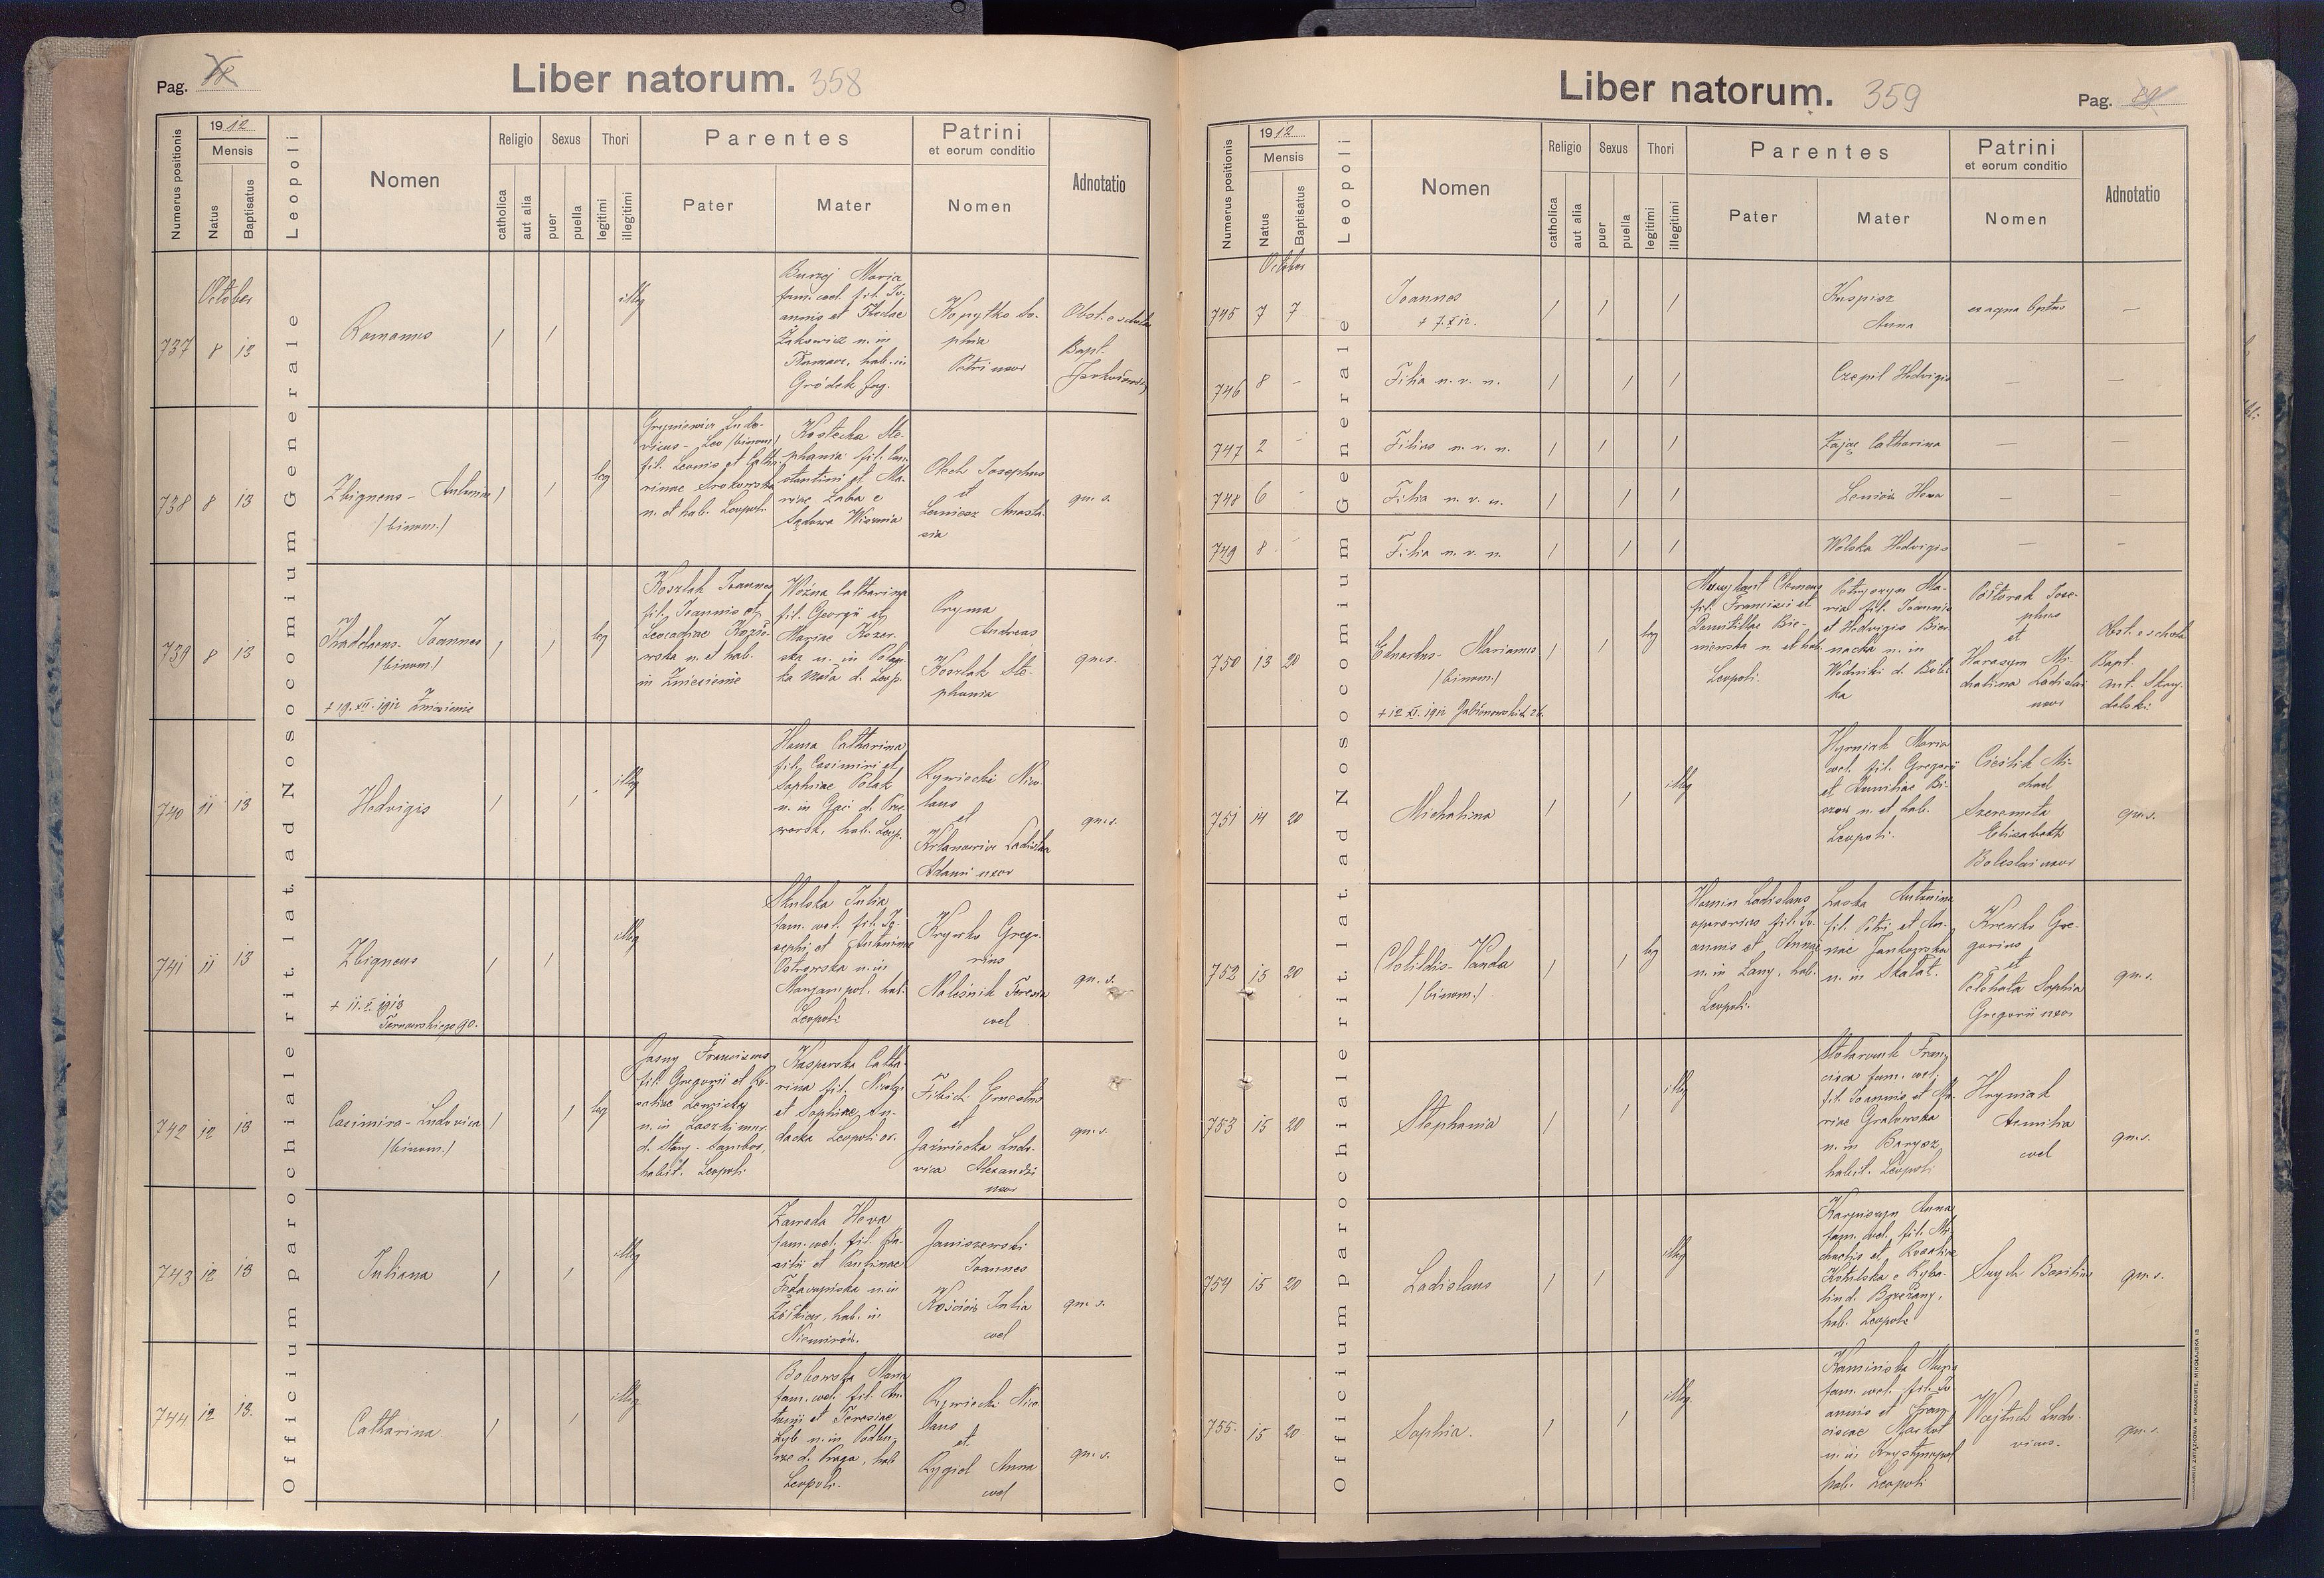 Pag.
Liber natorum. 358
Numerus positionis
1912
Mensis
Natus
Baptisatus
Leopoli
Nomen
Religio
catholica
aut alia
Sexus
puer
puella
Thori
legitimi
illegitimi
Parentes
Pater
Mater
Patrini
et eorum conditio
Nomen
Adnotatio
Officium parochiale rit. lat. ad Nosocomium Generale
October
737 8 13
Romanus
/ /
illeg
Burzej Maria
fam. cael. fil. Jo-
annis et Theclae
Żakowicz n. in
hab. in
Gródek Jag.
Kopytko So-
phia
Petri uxor
Obst. e schola
Bapt.
738 8 13
Zbigneus - Antonius
/binom./
/ /
leg
Gryniewicz Ludo-
vicus - Leo /binom/
fil. Leonis et Catha-
rinae Srokowska
n. et hab. Leopoli.
Kostecka Ste-
phania fil. Con-
stantini et Ma-
riae Łaba e
Sądowa Wisznia
Obch Josephus
et
Anasta-
sia
qu. s.
739 8 13
Thaddaeus - Joannes
/binom./
+ 19. XII. 1912 Zniesienie
/ /
leg
Koszlak Joannes
fil. Joannis et
Leocadiae
n. et hab.
in Zniesienie
Woźna Catharina
fil. Georgii et
Mariae Kozer-
ska n. in
d. Leop.
Pryma
Andreas
Koszlak Ste-
phania
qu. s.
740 11 13
Hedvigis
/ /
illeg
Homa Catharina
fil. Casimiri et
Sophiae Polak
n. in Gaci d. Prze-
worsk, hab. Leop.
Rywiecki Nico-
laus
et
Ladislaa
Adami uxor
qu. s.
741 11 13
Zbigneus
+ 11. X. 1913
Tarnowskiego 90.
/ /
illeg
Skulska Julia
fam. cael. fil. Jo-
sephi et Antoninae
Ostrowska n. in
Maryampol, hab.
Leopoli
Krysko Grego-
rius
Naleśnik Teresia
cael
qu. s.
742 12 13
Casimira - Ludovica
/binom./
/ /
leg
Jasny Franciscus
fil. Gregorii et Ro-
saliae
n. in Laszki mur.
d. Stary-Sambor,
habit. Leopoli
Kasperska Catha-
rina fil. Nicolai
et Sophiae Du-
dacka Leopoli or.
Fibich Ernestus
et
Jaźwiecka Ludo-
vica Alexandri
uxor
qu. s.
743 12 13
Juliana
/ /
illeg
Zawada Heva
fam. cael. fil. Ba-
silii et Paulinae
n. in
Żółkiew, hab. in
Niemirów.
Janiszewski
Joannes
Kościów Julia
cael
qu. s.
744 12 13.
Catharina.
/ /
illeg
Bobowska Maria
fam. cael. fil. An-
tonii et Teresiae
Zyb n. in Podbu-
że d. Praga, hab
Leopoli.
Rywiecki Nico-
laus
et
Rygiel Anna
cael
qu. s.
Liber natorum. 359
Pag.
Numerus positionis
1912
Mensis
Natus
Baptisatus
Leopoli
Nomen
Religio
catholica
aut alia
Sexus
puer
puella
Thori
legitimi
illegitimi
Parentes
Pater
Mater
Patrini
et eorum conditio
Nomen
Adnotatio
Officium parochiale rit. lat. ad Nosocomium Generale
October
745 7 7
Joannes
+ 7. X 12.
/ / /
Kuspisz
Anna
ex aqua bptus
—
746 8 -
Filia n. v. n.
/ / /
Czepil Hedvigis
— —
747 2 -
Filius n. v. n.
/ / /
Zając Catharina
—
748 6 -
Filia n. v. n.
/ / /
Heva
— —
749 8 -
Filia n. v. n.
/ / /
Wolska Hedvigis
— —
750 13 20
Eduardus - Marianus
/binom./
+ 12 XI. 1912 26.
/ /
leg
Clemens
fil. Francisci et
Domitillae Bie-
niewska n. et hab.
Leopoli.
Ma-
ria fil. Joannis
et Hedvigis Bier-
nacka n. in
Wodniki d. Bób-
ka
Półtorak Jose-
phus
et
Harasym Mi-
chalina Ladislai
uxor
Obst. e schola
Bapt.
Ant. Skar-
delski.
751 14 20
Michalina
/ /
illeg
Hyrniak Maria
cael. fil. Gregorii
et Aemiliae Bi-
n. et hab.
Leopoli.
Cieślik Mi-
chael
Szeremeta
Elisabeth
Boleslai uxor
qu. s.
752 15 20
Clotildis - Vanda
/binom./
/ /
leg
Homin Ladislaus
operarius fil. Jo-
annis et Annae
n. in Łany, hab.
Leopoli.
Laska Antonina
fil. Petri et An-
nae Jankowska
n. in Skałat.
Gre-
gorius
et
Pełehata Sophia
Gregorii uxor
qu. s.
753 15 20
Stephania
/ /
illeg
Stolarczuk Fran-
cisca fam. cael.
fil. Joannis et Ma-
riae Grabowska
n. in Barysz,
habit. Leopoli
Hryniak
Aemilia
cael
qu. s.
754 15 20
Ladislaus
/ /
illeg
Karpiszyn Anna
fam. cael. fil. Mi-
chaelis et Rosaliae
Kobilska e Ryba-
d. Brzeżany,
hab. Leopoli
Smych Basilius
qu. s.
755. 15 20
Sophia.
/ /
illeg
Kamińska Maria
fam. cael. fil. Jo-
annis et Fran-
ciscae Markot
n. in Krystynopol
hab. Leopoli
Wojtuch Ludo-
vicus.
qu. s.
DRUKARNIA ZWIĄZKOWA W KRAKOWIE, MIKOŁAJSKA 13